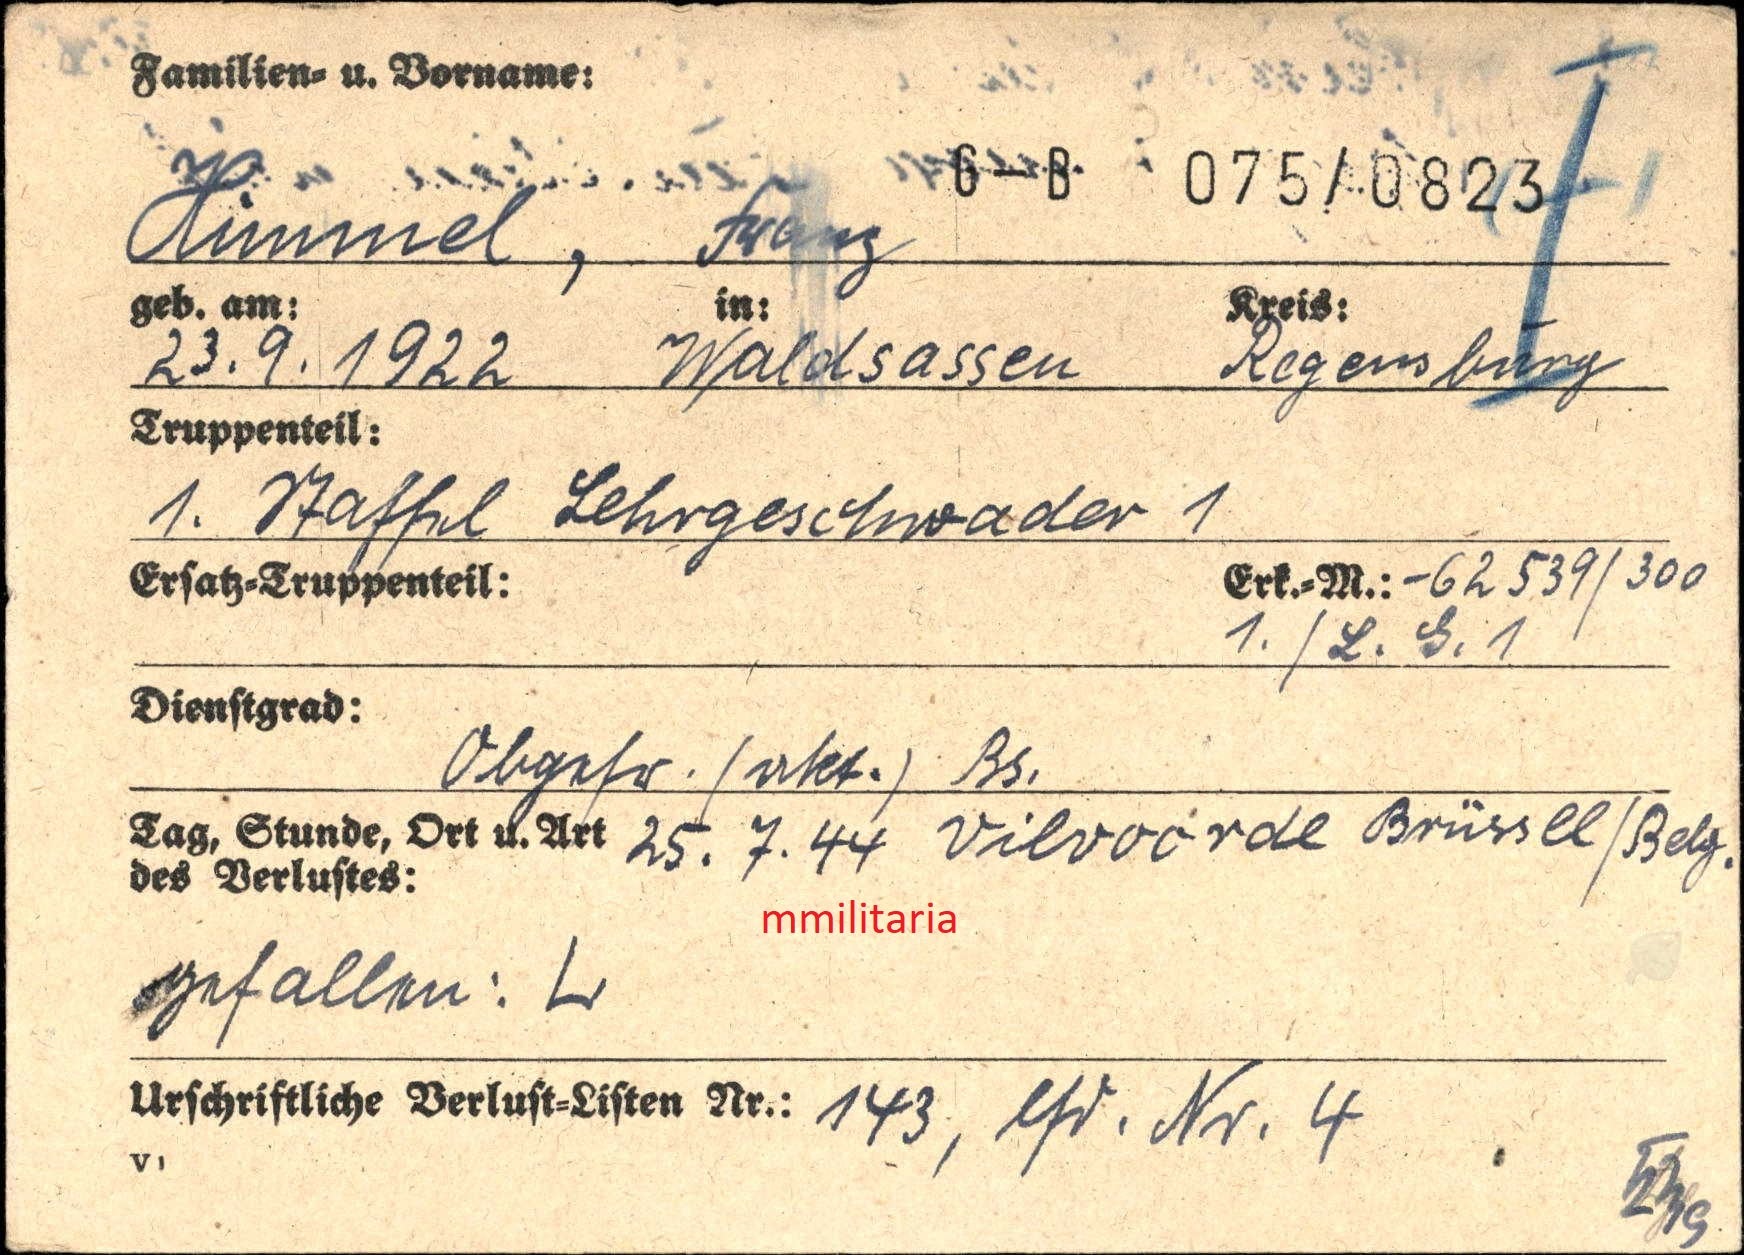 Familien- u. Vorname:
G-B 075/0823
Himmel, Franz
geb. am: in: Kreis:
23.9.1922 Waldsassen Regensburg
Truppenteil:
1. Staffel Lehrgeschwader 1
Ersatz-Truppenteil: Erk.-M.: -62539/300
1./L.G.1
Dienstgrad:
Obgefr. (akt.) Bs.
Tag, Stunde, Ort u. Art 25.7.44 Vilvoorde Brüssel/Belg.
des Verlustes:
mmilitaria
gefallen:
Urschriftliche Verlust-Listen Nr.: 143, lfd. Nr. 4
V1